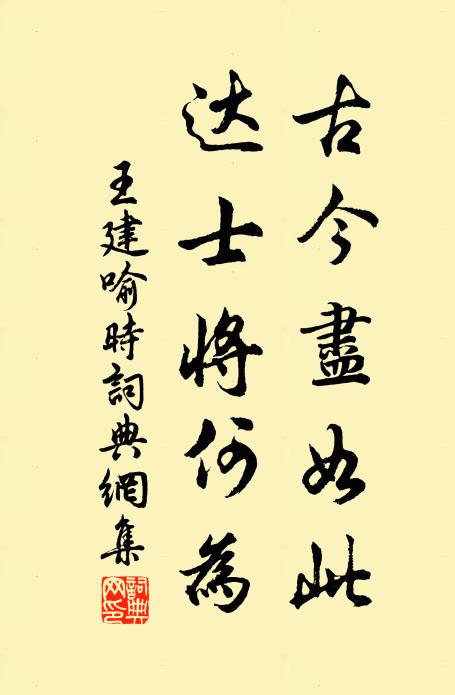 古今盡如此
达士將何為
王建喻時詞典網集
詞典網印